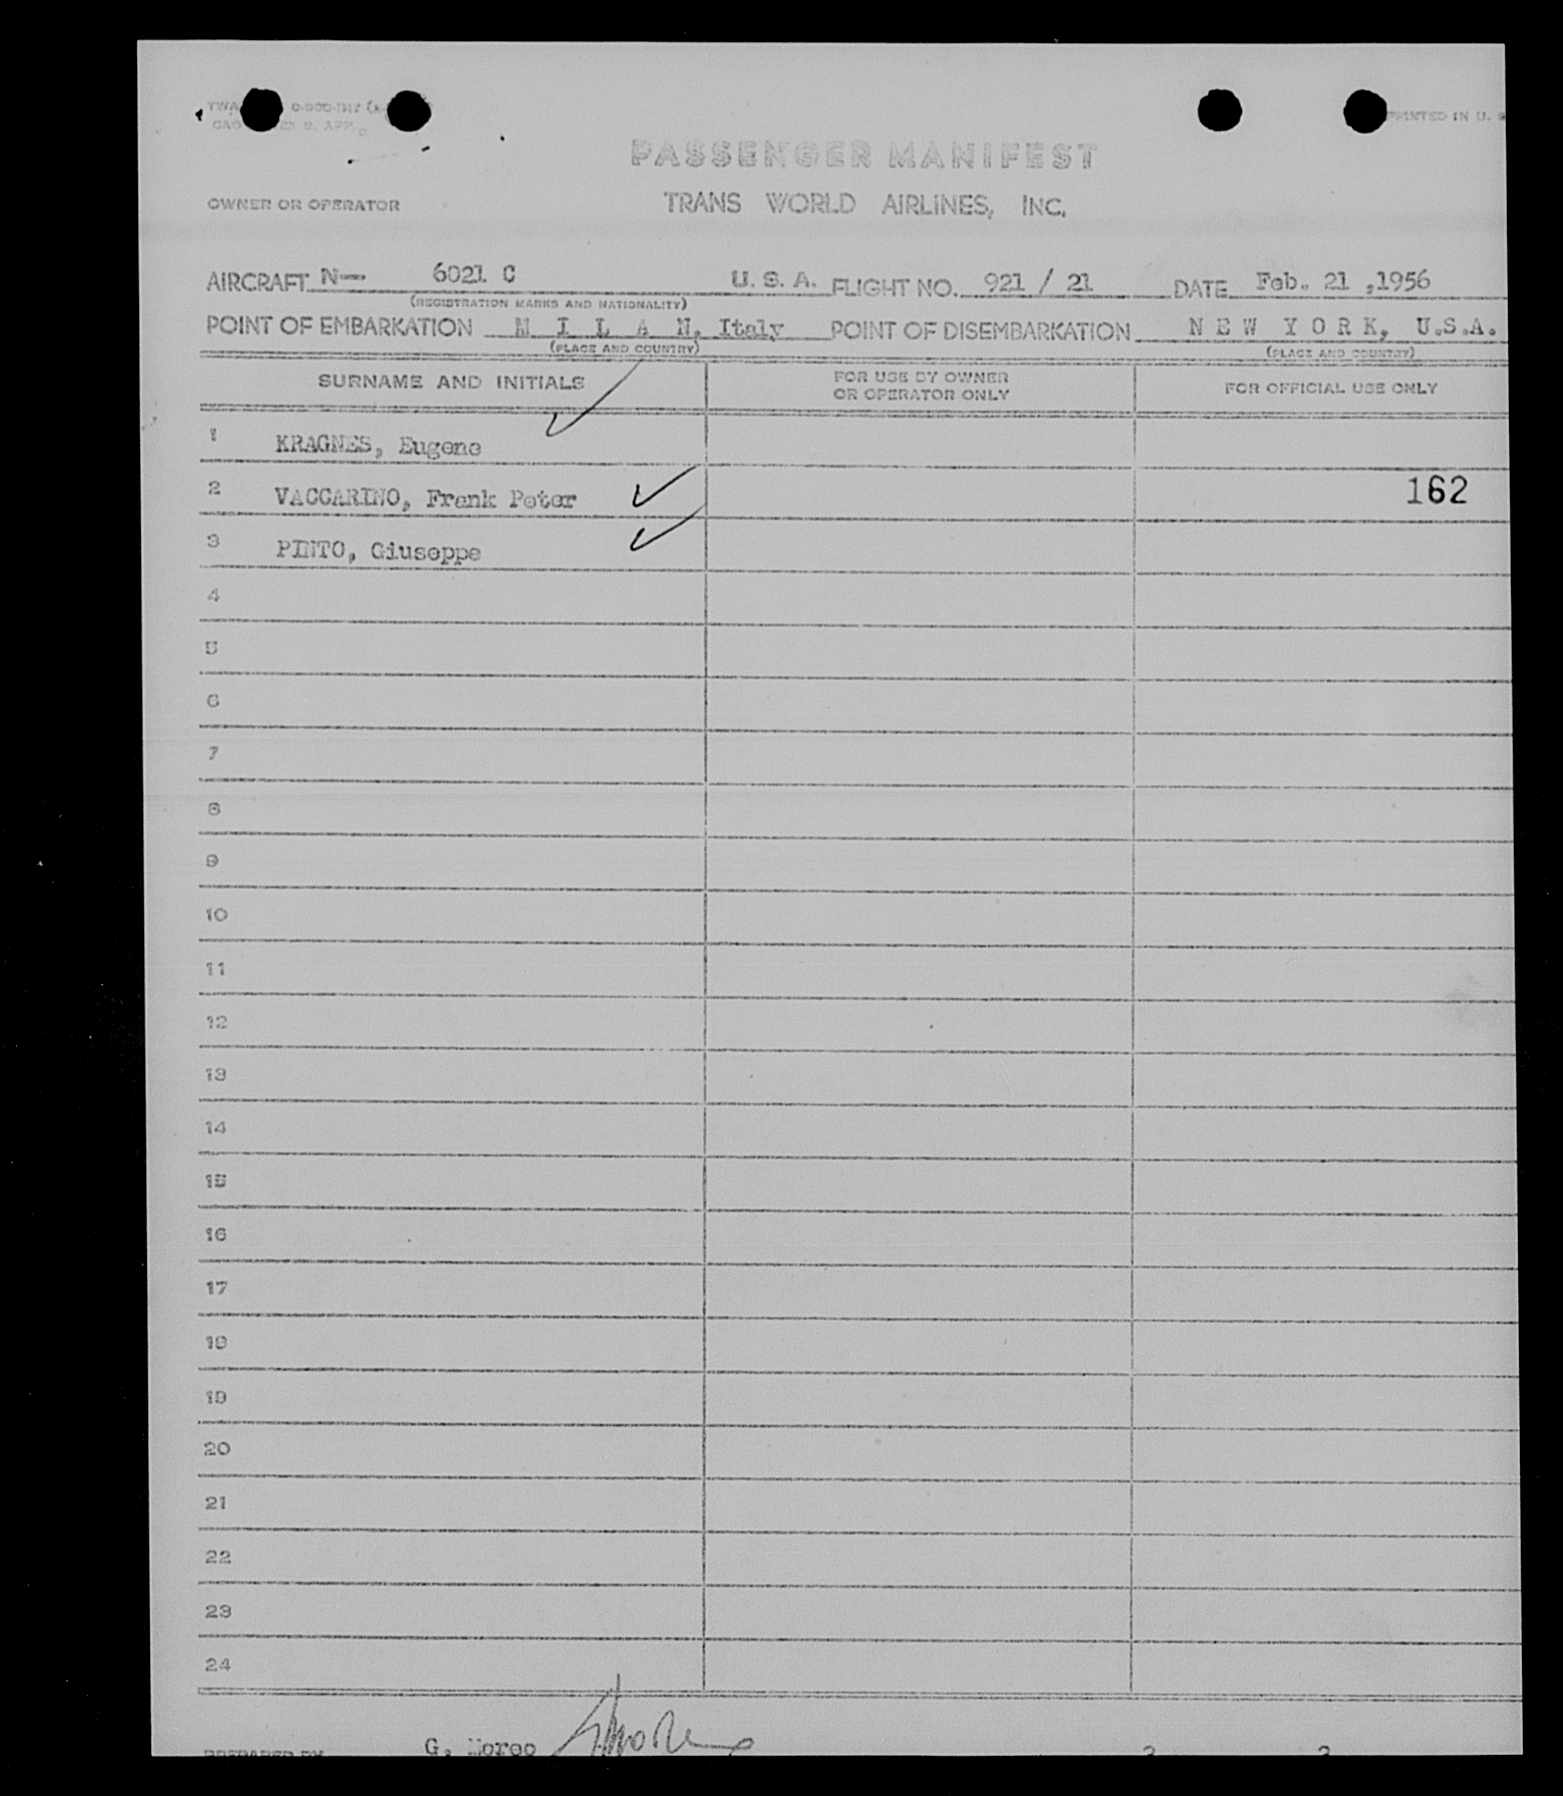 TWA
PRINTED IN U. S
PASSENGER MANIFEST
OWNER OR OPERATOR TRANS WORLD AIRLINES, INC.
AIRCRAFT N— 6021 C U. S. A. FLIGHT NO. 921 / 21 DATE Feb. 21 ,1956
(REGISTRATION MARKS AND NATIONALITY)
POINT OF EMBARKATION M I L A N, Italy POINT OF DISEMBARKATION N E W Y O R K, U.S.A.
(PLACE AND COUNTRY) (PLACE AND COUNTRY)
SURNAME AND INITIALS FOR USE BY OWNER OR OPERATOR ONLY FOR OFFICIAL USE ONLY
1 KRAGNES, Eugene
2 VACCARINO, Frank Peter 162
3 PINTO, Giuseppe
4
5
6
7
8
9
10
11
12
13
14
15
16
17
18
19
20
21
22
23
24
PREPARED BY G.